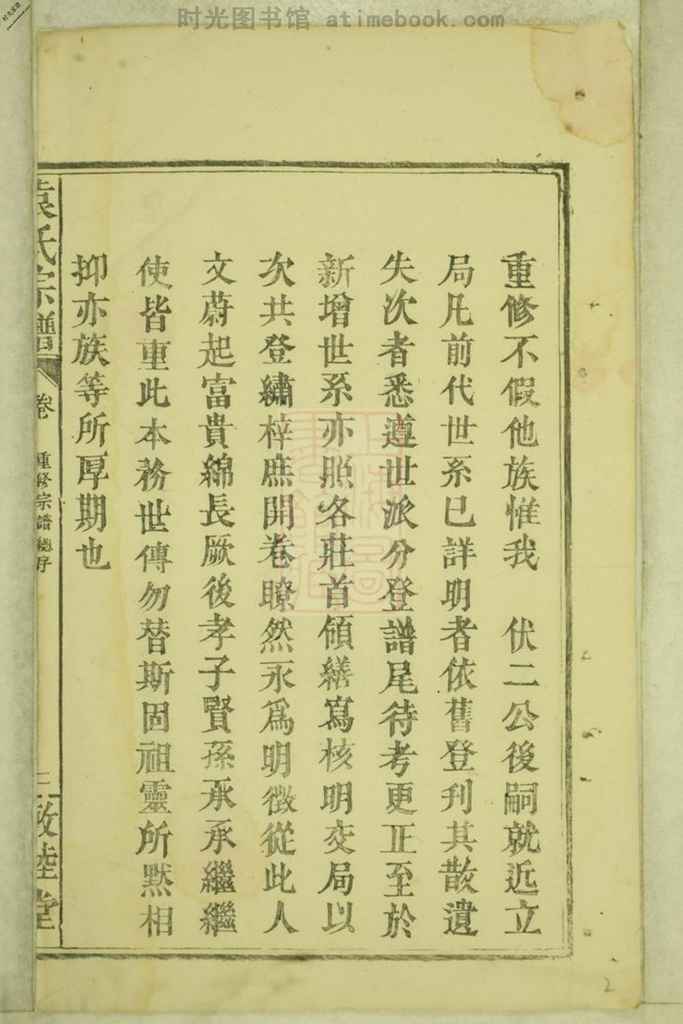 时光图书馆 atimebook.com
重修不假他族惟我　伏二公後嗣就近立
局凡前代世系已詳明者依舊登刊其散遺
失次者悉遵世派分登譜尾待考更正至於
新增世系亦照各莊首領繕寫核明交局以
次共登繡梓庶開卷瞭然永爲明徵從此人
文蔚起富貴綿長厥後孝子賢孫承承繼繼
使皆重此本務世傳勿替斯固祖靈所黙相
抑亦族等所厚期也
袁氏宗譜 卷 重修宗譜總序 三 敦睦堂
2